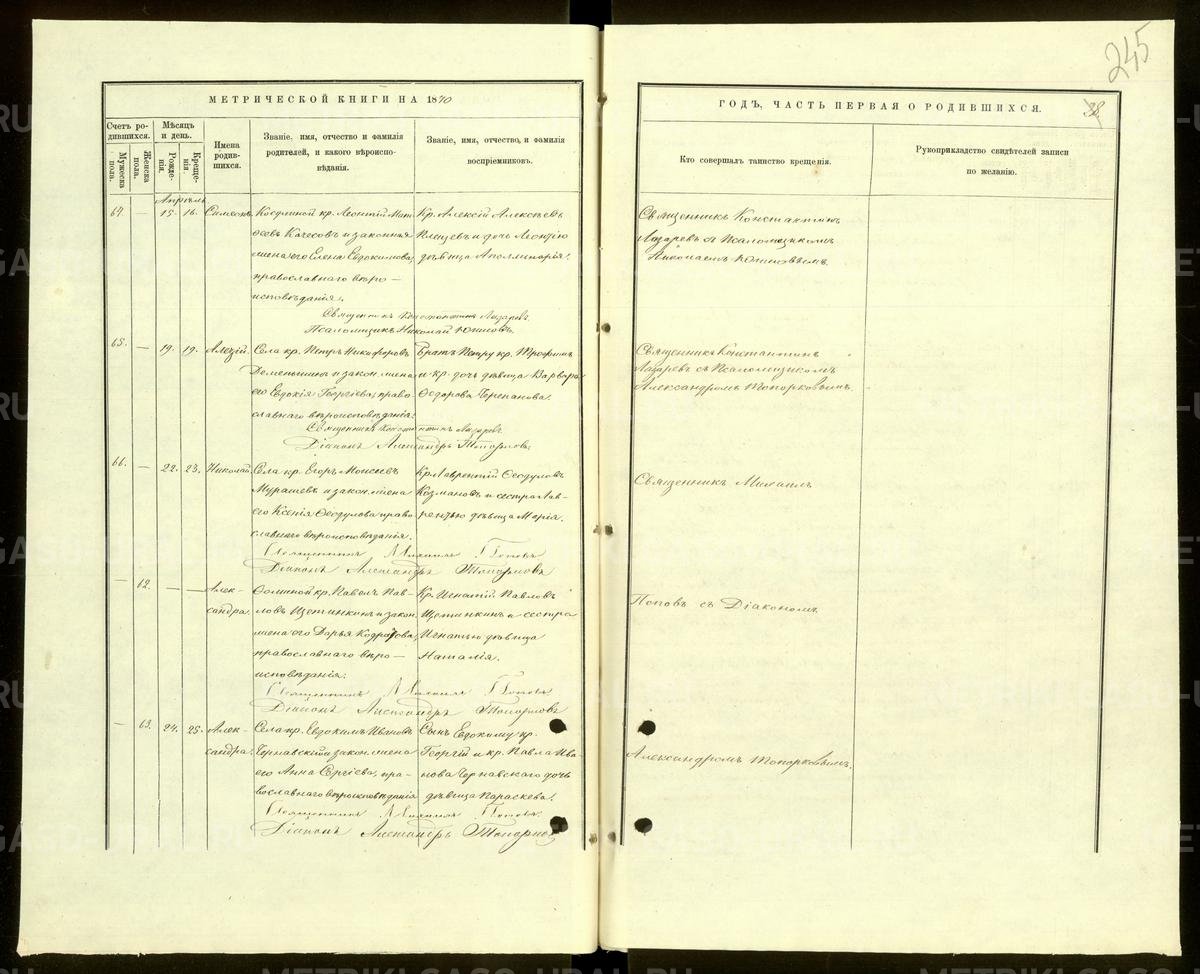 245
МЕТРИЧЕСКОЙ КНИГИ НА 1870
ГОДЪ, ЧАСТЬ ПЕРВАЯ О РОДИВШИХСЯ.
38.
Счетъ ро-
дившихся.
Мужеска
пола.
Женска
пола.
Мѣсяцъ
и день.
Рожде-
нія.
Креще-
нія.
Имена
родив-
шихся.
Званіе, имя, отчество и фамилія
родителей, и какого вѣроиспо-
вѣданія.
Званіе, имя, отчество, и фамилія
воспріемниковъ.
Кто совершалъ таинство крещенія.
Рукоприкладство свидѣтелей записи
по желанію.
Апрѣль
64. — 15. 16. Симеонъ.
кр. Леонтій Мат-
ѳеевъ и законная
жена его Елена Евдокимова,
православнаго вѣро—
исповѣданія.
Кр. Алексій Алексѣевъ
и дочь Леонтію
дѣвица Аполлинарія.
Священникъ Константинъ
Лазаревъ съ Псаломщикомъ
Николаемъ
Священникъ Константинъ Лазаревъ.
Псаломщикъ Николай
65. — 19. 19. Алексій.
Села кр. Петръ Никифоровъ
и закон. жена
его Евдокія Георгіева, право-
славнаго вѣроисповѣданія.
Братъ Петру кр. Трофимъ
и кр. дочь дѣвица Варвара
Ѳедорова Черепанова.
Священникъ Константинъ
Лазаревъ съ Псаломщикомъ
Александромъ Топорковымъ.
Священникъ Константинъ Лазаревъ
Діаконъ Александръ Топорковъ
66. — 22. 23. Николай.
Села кр. Егоръ Моисеевъ
Мурашевъ и закон. жена
его Ксенія Ѳеодулова право-
славнаго вѣроисповѣданія.
Кр. Лаврентій Ѳеодуловъ
Козмановъ и сестра Лав-
рентью дѣвица Марія.
Священникъ Михаилъ
Священникъ Михаилъ Поповъ
Діаконъ Александръ Топорковъ
— 62. — — Алек-
сандра.
кр. Павелъ Пав-
ловъ Щетинкинъ и закон.
жена его Дарья Кодратова,
православнаго вѣро—
исповѣданія.
Кр. Игнатій Павловъ
Щетинкинъ и сестра
Игнатью дѣвица
Наталія.
Поповъ съ Діакономъ
Священникъ Михаилъ Поповъ
Діаконъ Александръ Топорковъ
— 63. 24. 25. Алек-
сандра.
Села кр. Евдокимъ Ивановъ
Чернавскій и закон. жена
его Анна Сергіева, пра-
вославнаго вѣроисповѣданія
Сынъ Евдокиму кр.
Георгій и кр. Павла Ива-
нова Чернавскаго дочь
дѣвица Параскева.
Александромъ Топорковымъ.
Священникъ Михаилъ Поповъ.
Діаконъ Александръ Топорковъ